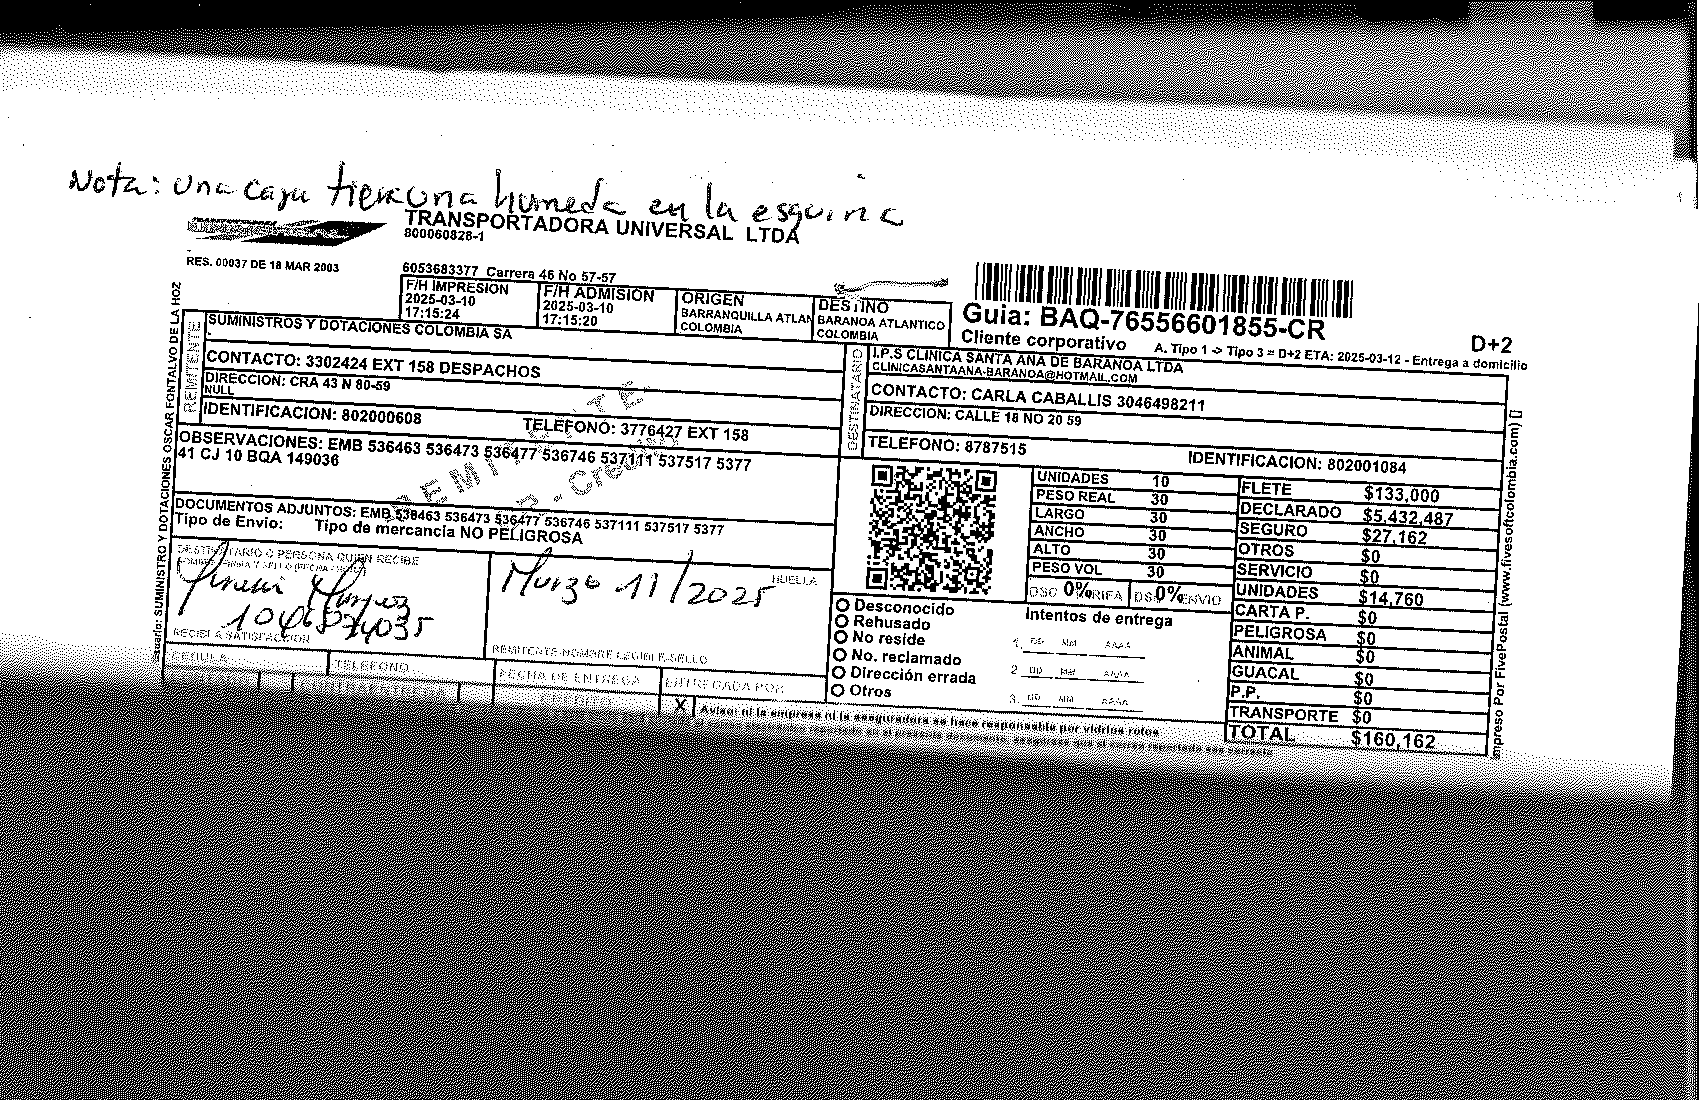 Nota: una caja tiene una humeda en la esquina
TRANSPORTADORA UNIVERSAL LTDA
800060828-1
RES. 00037 DE 18 MAR 2003
6053683377 Carrera 46 No 57-57
F/H IMPRESION
2025-03-10
17:15:24
F/H ADMISION
2025-03-10
17:15:20
ORIGEN
BARRANQUILLA ATLAN
COLOMBIA
DESTINO
BARANOA ATLANTICO
COLOMBIA
Guia: BAQ-76556601855-CR
Cliente corporativo
D+2
A. Tipo 1 -> Tipo 3 = D+2 ETA: 2025-03-12 - Entrega a domicilio
REMITENTE
SUMINISTROS Y DOTACIONES COLOMBIA SA
CONTACTO: 3302424 EXT 158 DESPACHOS
DIRECCION: CRA 43 N 80-59
NULL
IDENTIFICACION: 802000608
TELEFONO: 3776427 EXT 158
OBSERVACIONES: EMB 536463 536473 536477 536746 537111 537517 5377
41 CJ 10 BQA 149036
DOCUMENTOS ADJUNTOS: EMB 536463 536473 536477 536746 537111 537517 5377
Tipo de Envio: Tipo de mercancia NO PELIGROSA
REMITENTE
DESTINATARIO
I.P.S CLINICA SANTA ANA DE BARANOA LTDA
CLINICASANTAANA-BARANOA@HOTMAIL.COM
CONTACTO: CARLA CABALLIS 3046498211
DIRECCION: CALLE 18 NO 20 59
TELEFONO: 8787515
IDENTIFICACION: 802001084
UNIDADES 10
PESO REAL 30
LARGO 30
ANCHO 30
ALTO 30
PESO VOL 30
DSC 0% RIFA
DS 0% ENVIO
FLETE $133,000
DECLARADO $5,432,487
SEGURO $27,162
OTROS $0
SERVICIO $0
UNIDADES $14,760
CARTA P. $0
PELIGROSA $0
ANIMAL $0
GUACAL $0
P.P. $0
TRANSPORTE $0
TOTAL $160,162
DESTINATARIO O PERSONA QUIEN RECIBE
Marzo 11/2025
HUELLA
RECIBI A SATISFACCION
REMITENTE-NOMBRE LEGIBLE-SELLO
CEDULA
TELEFONO
FECHA DE ENTREGA
ENTREGADA POR
Desconocido
Rehusado
No reside
No. reclamado
Dirección errada
Otros
Intentos de entrega
1. DD MM AAAA
2. DD MM AAAA
3. DD MM AAAA
X
Aviso: ni la empresa ni la aseguradora se hace responsable por vidrios rotos
SUMINISTRO Y DOTACIONES OSCAR FONTALVO DE LA HOZ
Impreso Por FivePostal (www.fivesoftcolombia.com) []